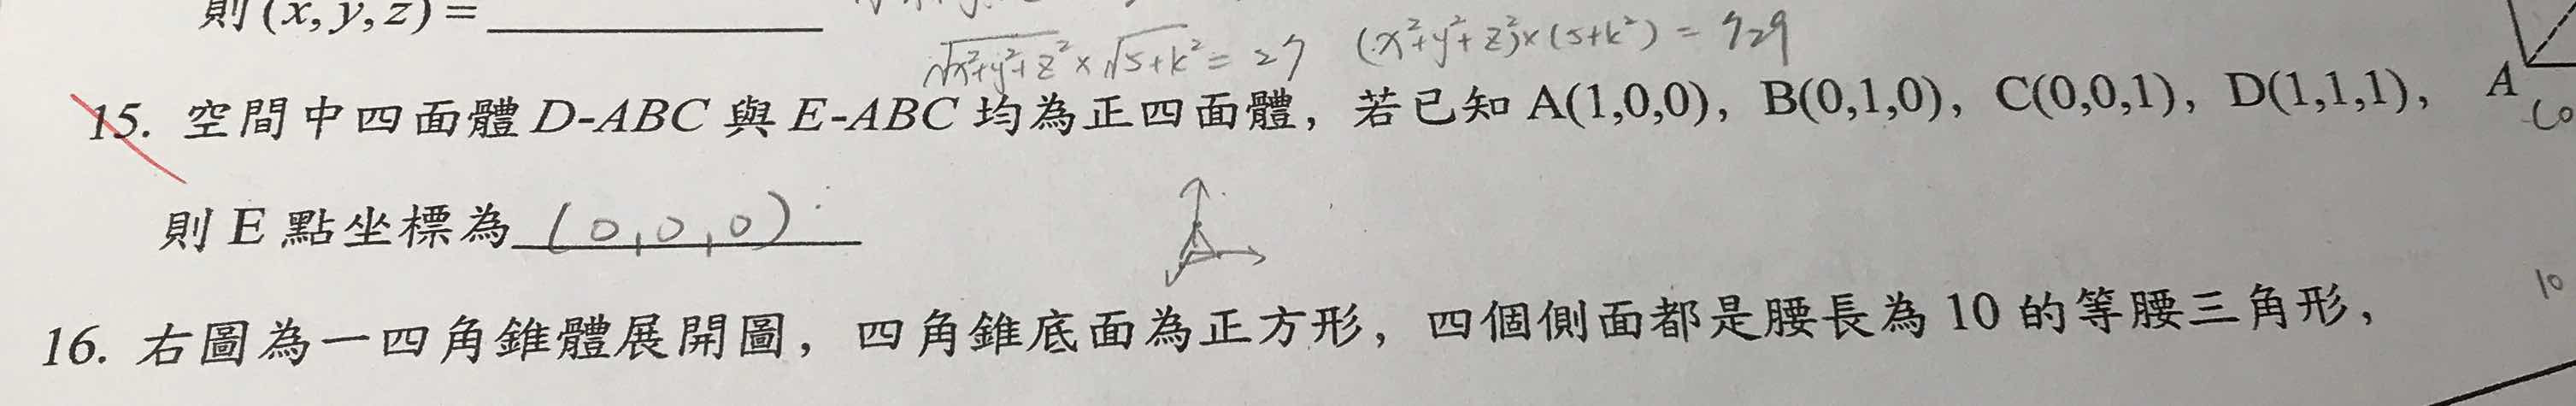 則 (x, y, z) = 
√x²+y²+z² × √5+k² = 27 (x²+y²+z²)×(5+k²) = 729
15. 空間中四面體 D-ABC 與 E-ABC 均為正四面體，若已知 A(1,0,0)，B(0,1,0)，C(0,0,1)，D(1,1,1)，
A
則 E 點坐標為 (0,0,0)
10
16. 右圖為一四角錐體展開圖，四角錐底面為正方形，四個側面都是腰長為 10 的等腰三角形，